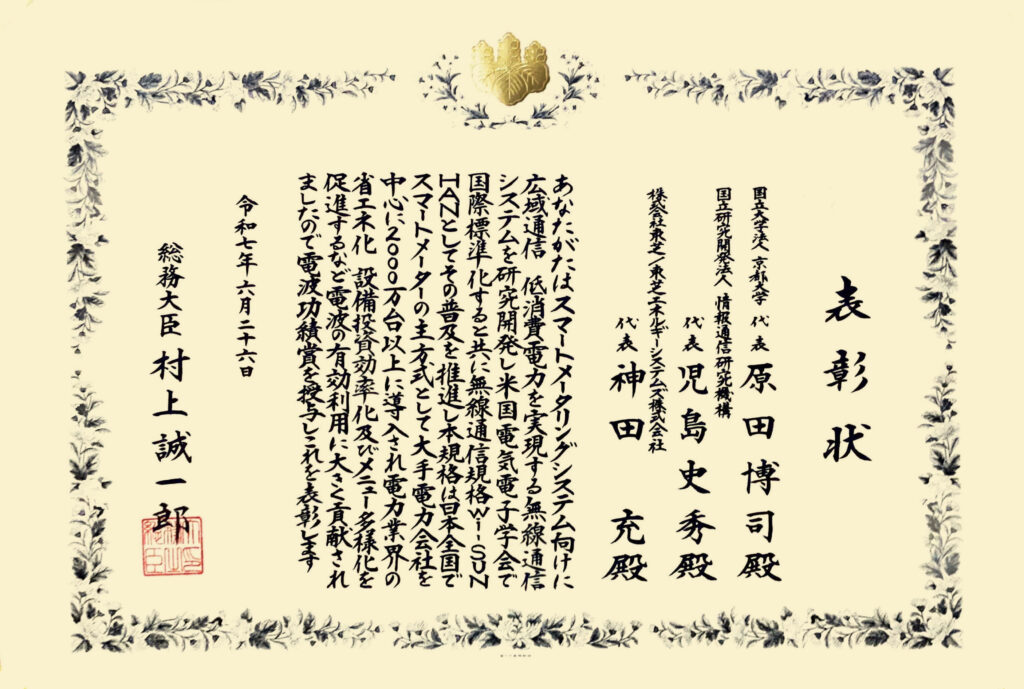 表彰状
国立大学法人 京都大学 代表 原田博司殿
国立研究開発法人 情報通信研究機構
代表 児島史秀殿
株式会社東芝/東芝エネルギーシステムズ株式会社
代表 神田 充殿
あなたがたはスマートメータリングシステム向けに
広域通信 低消費電力を実現する無線通信
システムを研究開発し米国電気電子学会で
国際標準化すると共に無線通信規格Wi-SUN
HANとしてその普及を推進し本規格は日本全国で
スマートメーターの主方式として大手電力会社を
中心に2000万台以上に導入され電力業界の
省エネ化 設備投資効率化及びメニュー多様化を
促進するなど電波の有効利用に大きく貢献され
ましたので電波功績賞を授与しこれを表彰します
令和七年六月二十六日
総務大臣 村上誠一郎